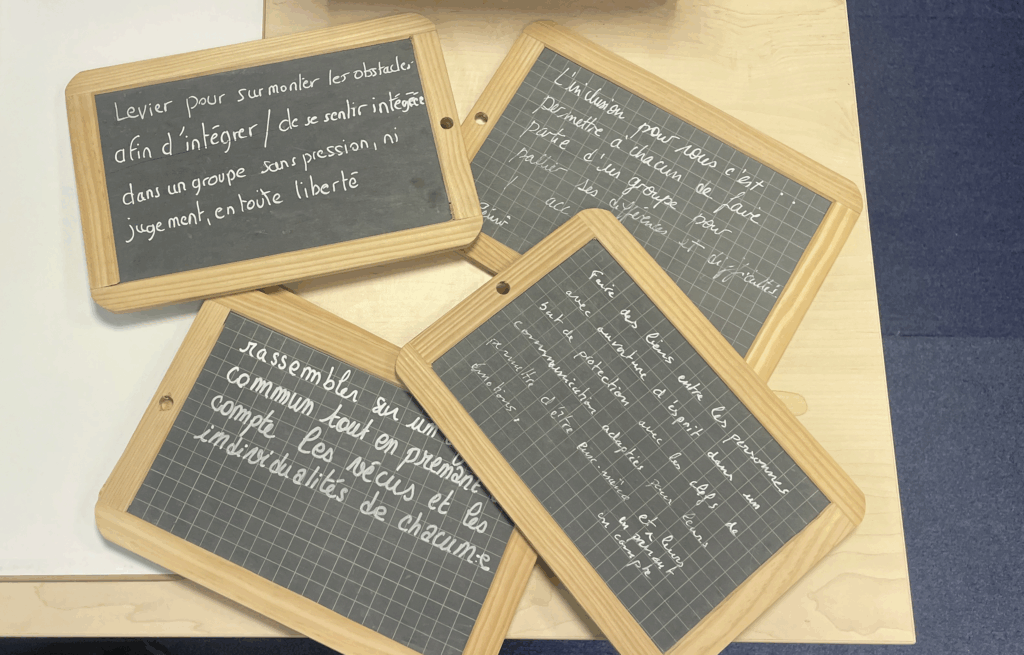 Levier pour surmonter les obstacles
afin d'intégrer / de se sentir intégrée
dans un groupe sans pression, ni
jugement, en toute liberté
L'inclusion pour nous c'est :
permettre à chacun de faire
partie d'un groupe pour
palier ses différences et difficultés.
rassembler sur un
commun tout en prenant
compte les vécus et les
individualités de chacun·e
Faire des liens entre les personnes
avec ouverture d'esprit dans un
but de protection avec les clefs de
communication adaptées pour leurs
permettre d'être eux-même et leurs
émotions,
en prenant
en compte